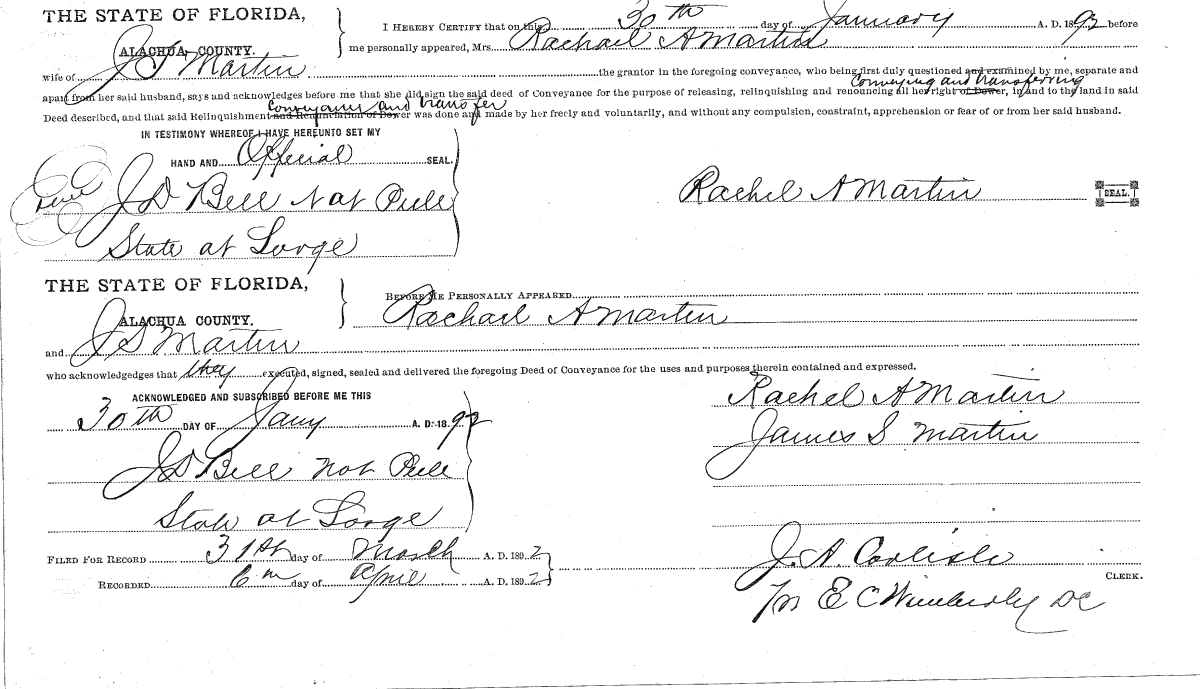 THE STATE OF FLORIDA,
ALACHUA COUNTY.
I HEREBY CERTIFY that on this 30th day of January A. D. 1892 before
me personally appeared, Mrs. Rachael A Martin
wife of J S Martin the grantor in the foregoing conveyance, who being first duly questioned and examined by me, separate and
conveying and transferring
apart from her said husband, says and acknowledges before me that she did sign the said deed of Conveyance for the purpose of releasing, relinquishing and renouncing all her right of Dower, in and to the land in said
Conveyance and transfer
Deed described, and that said Relinquishment and Renunciation of Dower was done and made by her freely and voluntarily, and without any compulsion, constraint, apprehension or fear of or from her said husband.
IN TESTIMONY WHEREOF I HAVE HEREUNTO SET MY
HAND AND Official SEAL.
J D Bell Not Pub
Rachel A Martin SEAL.
State at Large
THE STATE OF FLORIDA,
ALACHUA COUNTY.
BEFORE ME PERSONALLY APPEARED
Rachael A Martin
and J S Martin
who acknowledges that they executed, signed, sealed and delivered the foregoing Deed of Conveyance for the uses and purposes therein contained and expressed.
ACKNOWLEDGED AND SUBSCRIBED BEFORE ME THIS
30th DAY OF Jany A. D. 1892
Rachel A Martin
James S Martin
J D Bell Not Pub
State at Large
FILED FOR RECORD 31st day of March A. D. 1892
RECORDED 6th day of April A. D. 1892
J. A. Carlisle
CLERK.
E C Wimberly DC